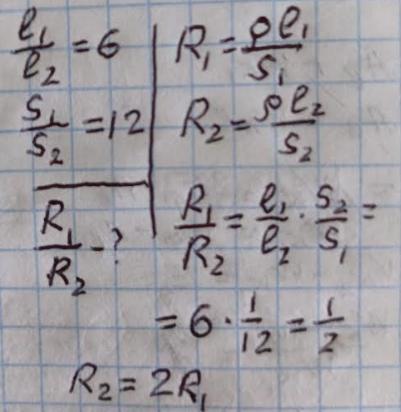 l₁/l₂ = 6
S₁/S₂ = 12
R₁/R₂ - ?
R₁ = ρl₁/S₁
R₂ = ρl₂/S₂
R₁/R₂ = l₁/l₂ · S₂/S₁ =
= 6 · 1/12 = 1/2
R₂ = 2R₁